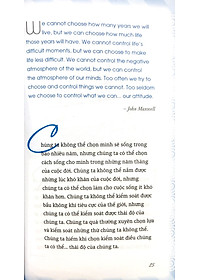 We cannot choose how many years we will
live, but we can choose how much life
those years will have. We cannot control life's
difficult moments, but we can choose to make
life less difficult. We cannot control the negative
atmosphere of the world, but we can control
the atmosphere of our minds. Too often we try to
choose and control things we cannot. Too seldom
we choose to control what we can... our attitude.
- John Maxwell
Chúng ta không thể chọn mình sẽ sống trong
bao nhiêu năm, nhưng chúng ta có thể chọn
cách sống cho mình trong những năm tháng
của cuộc đời. Chúng ta không thể nắm được
những lúc khó khăn của cuộc đời, nhưng
chúng ta có thể chọn làm cho cuộc sống ít khó
khăn hơn. Chúng ta không thể kiểm soát được
bầu không khí tiêu cực của thế giới, nhưng
chúng ta có thể kiểm soát được thái độ của
chúng ta. Chúng ta quá thường xuyên chọn lựa
và kiểm soát những thứ chúng ta không thể.
Chúng ta hiếm khi chọn kiểm soát điều chúng
ta có thể... thái độ của chúng ta.
15